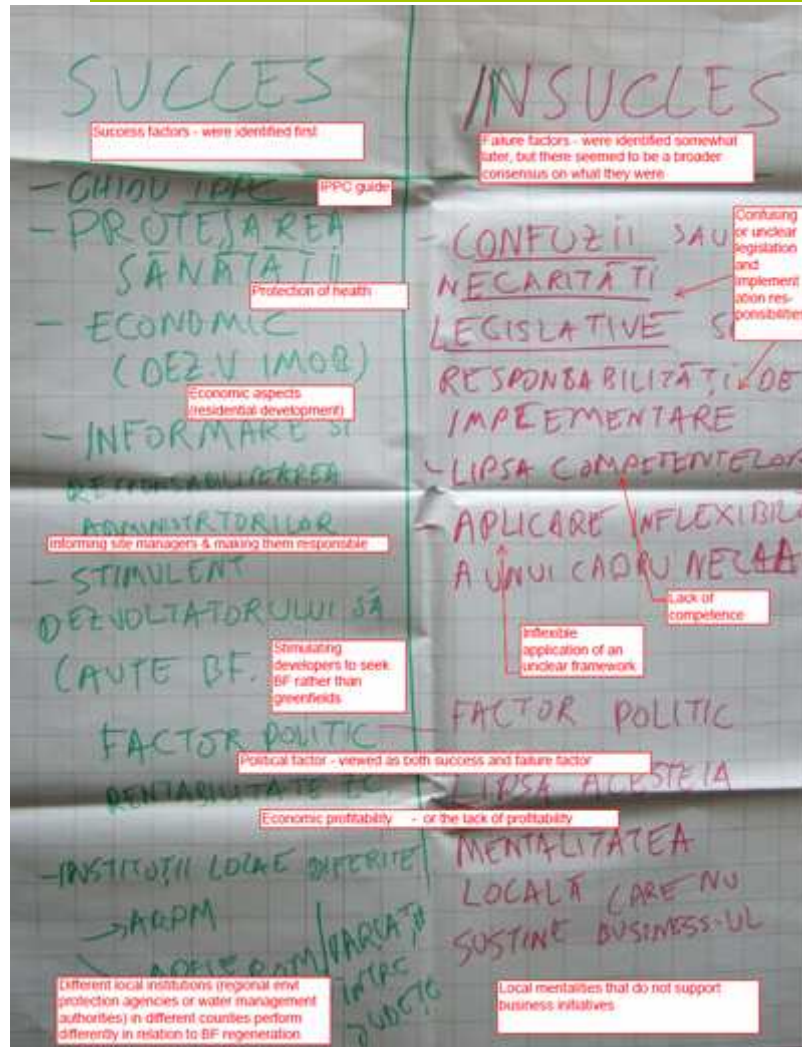 SUCCES
Success factors - were identified first
- GHIDU IPPC
IPPC guide
- PROTEJAREA
SĂNĂTĂȚII
Protection of health
- ECONOMIC
(DEZ.V IMOB)
Economic aspects
(residential development)
- INFORMARE SI
RESPONSABILIZAREA
ADMINISTRTORILOR
Informing site managers & making them responsible
- STIMULENT
DEZVOLTATORULUI SĂ
CAUTE BF.
Stimulating
developers to seek
BF rather than
greenfields
FACTOR POLITIC
RENTABILITATE EC.
- INSTITUȚII LOCALE DIFERITE
→ ARPM
INTRE
JUDEȚE
Different local institutions (regional envt
protection agencies or water management
authorities) in different counties perform
differently in relation to BF regeneration
INSUCCES
Failure factors - were identified somewhat
later, but there seemed to be a broader
consensus on what they were
- CONFUZII SAU
NECARITĂȚI
LEGISLATIVE
RESPONSABILITĂȚI DE
IMPLEMENTARE
Confusing
or unclear
legislation
and
implement
ation res-
ponsibilities
- LIPSA COMPETENȚELOR
- APLICARE INFLEXIBILĂ
A UNUI CADRU
Lack of
competence
Inflexible
application of an
unclear framework
FACTOR POLITIC
Political factor - viewed as both success and failure factor
LIPSA ACESTEIA
Economic profitability - or the lack of profitability
MENTALITATEA
LOCALĂ CARE NU
SUSTINE BUSINESS-UL
Local mentalities that do not support
business initiatives